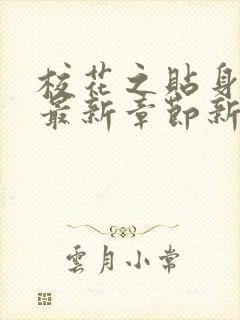 校花之貼身
最新章節新
雲月小常